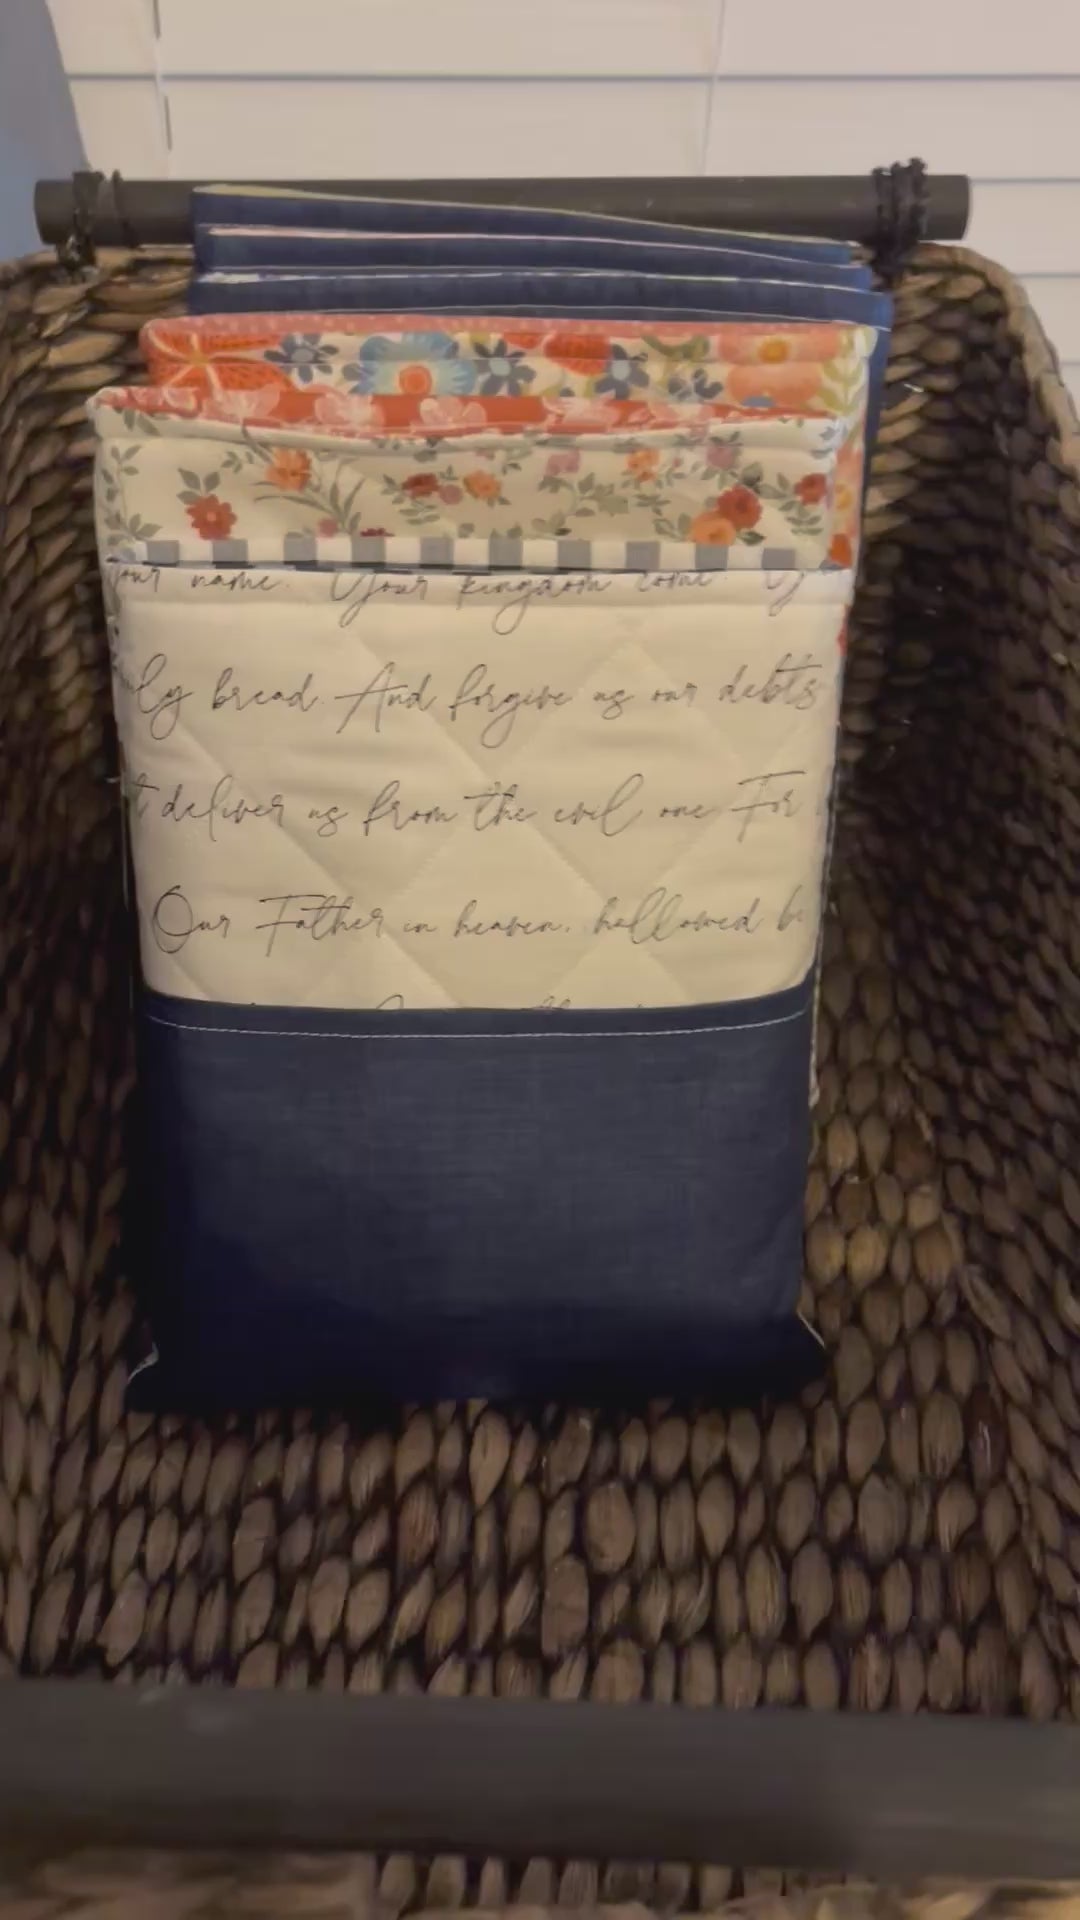 your name. Your kingdom come. Y
ly bread. And forgive us our debts
t deliver us from the evil one. For
Our Father in heaven, hallowed b